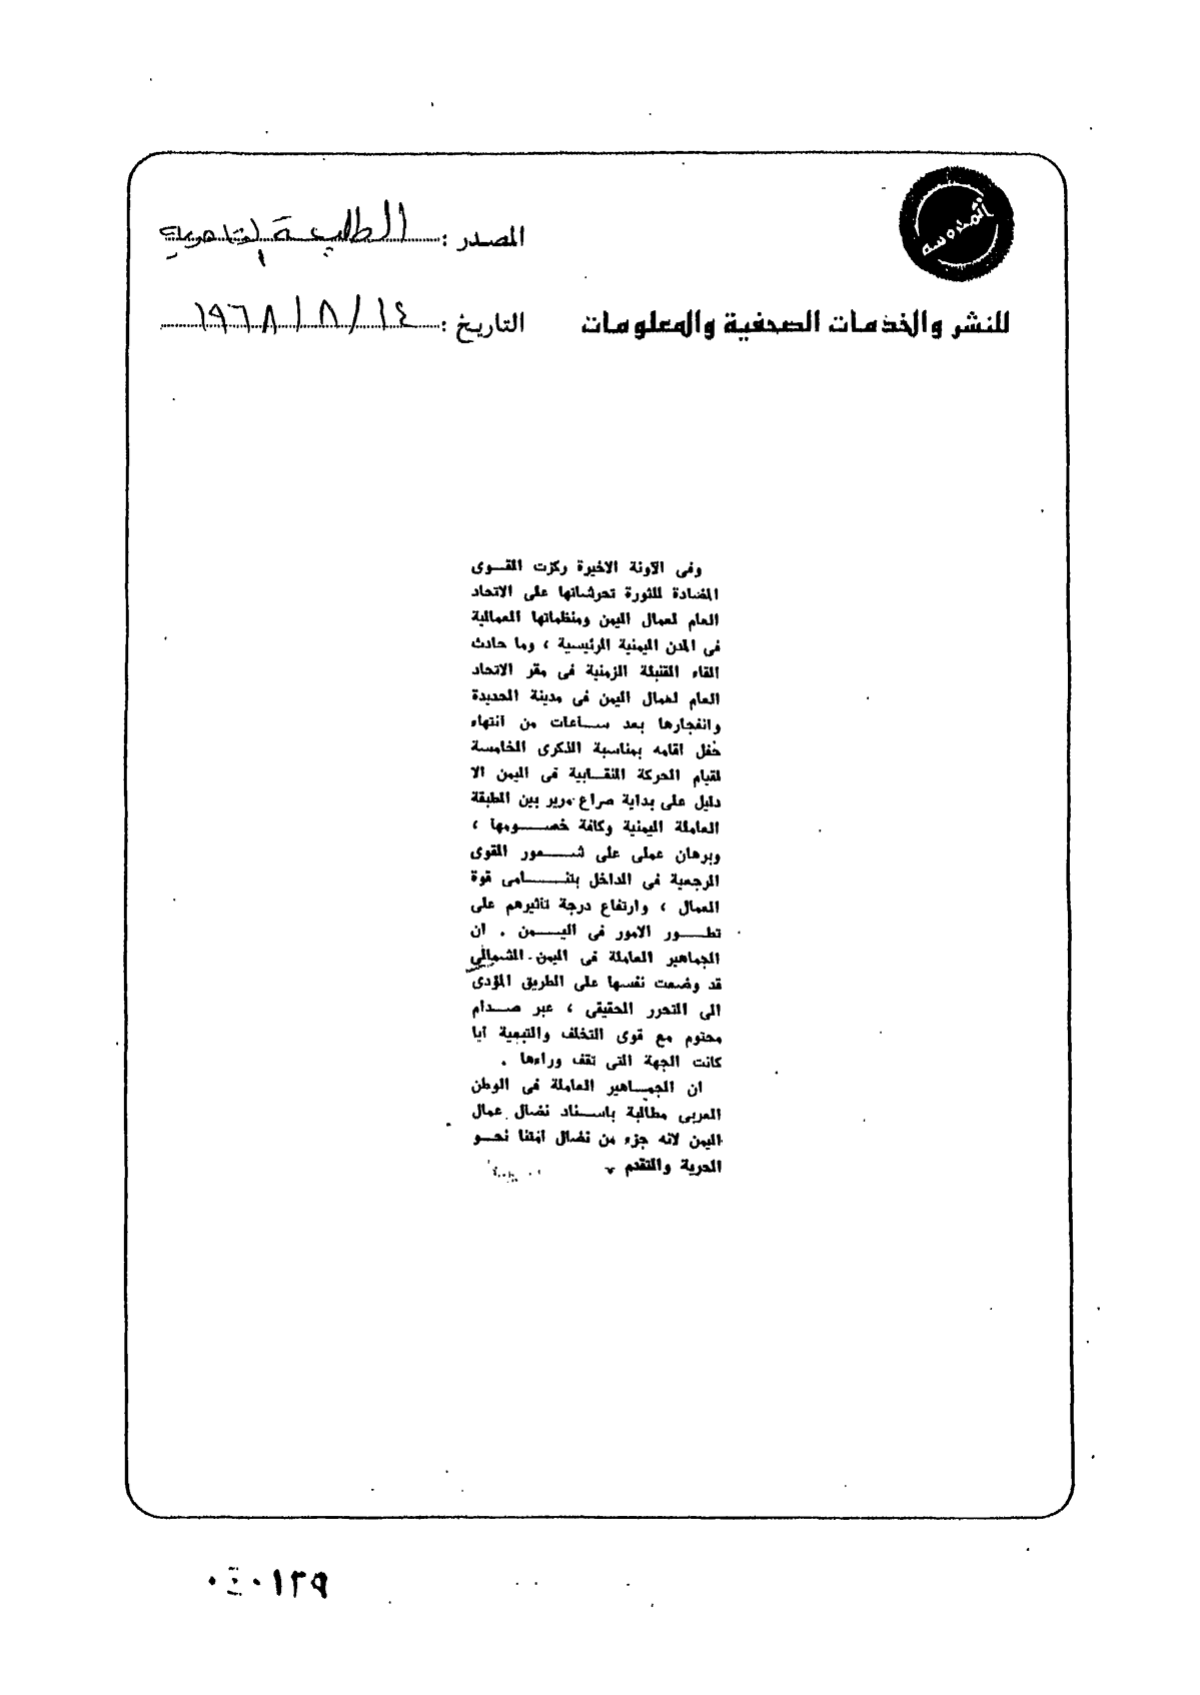 المحروسة
المصدر : الطليعة القاهرية
للنشر والخدمات الصحفية والمعلومات
التاريخ : ١٤ / ٨ / ١٩٦٨
وفى الآونة الاخيرة ركزت القوى
المضادة للثورة تحرشاتها على الاتحاد
العام لعمال اليمن ومنظماتها العمالية
فى المدن اليمنية الرئيسية ، وما حادث
القاء القنبلة الزمنية فى مقر الاتحاد
العام لعمال اليمن فى مدينة الحديدة
وانفجارها بعد ساعات من انتهاء
حفل اقامه بمناسبة الذكرى الخامسة
لقيام الحركة النقابية فى اليمن الا
دليل على بداية صراع مرير بين الطبقة
العاملة اليمنية وكافة خصومها ،
وبرهان عملى على شعور القوى
الرجعية فى الداخل بتنامى قوة
العمال ، وارتفاع درجة تأثيرهم على
تطور الامور فى اليمن . ان
الجماهير العاملة فى اليمن الشمالي
قد وضعت نفسها على الطريق المؤدى
الى التحرر الحقيقى ، عبر صدام
محتوم مع قوى التخلف والتبعية أيا
كانت الجهة التى تقف وراءها .
ان الجماهير العاملة فى الوطن
العربى مطالبة باسناد نضال عمال
اليمن لانه جزء من نضال امتنا نحو
الحرية والتقدم
١٣٩